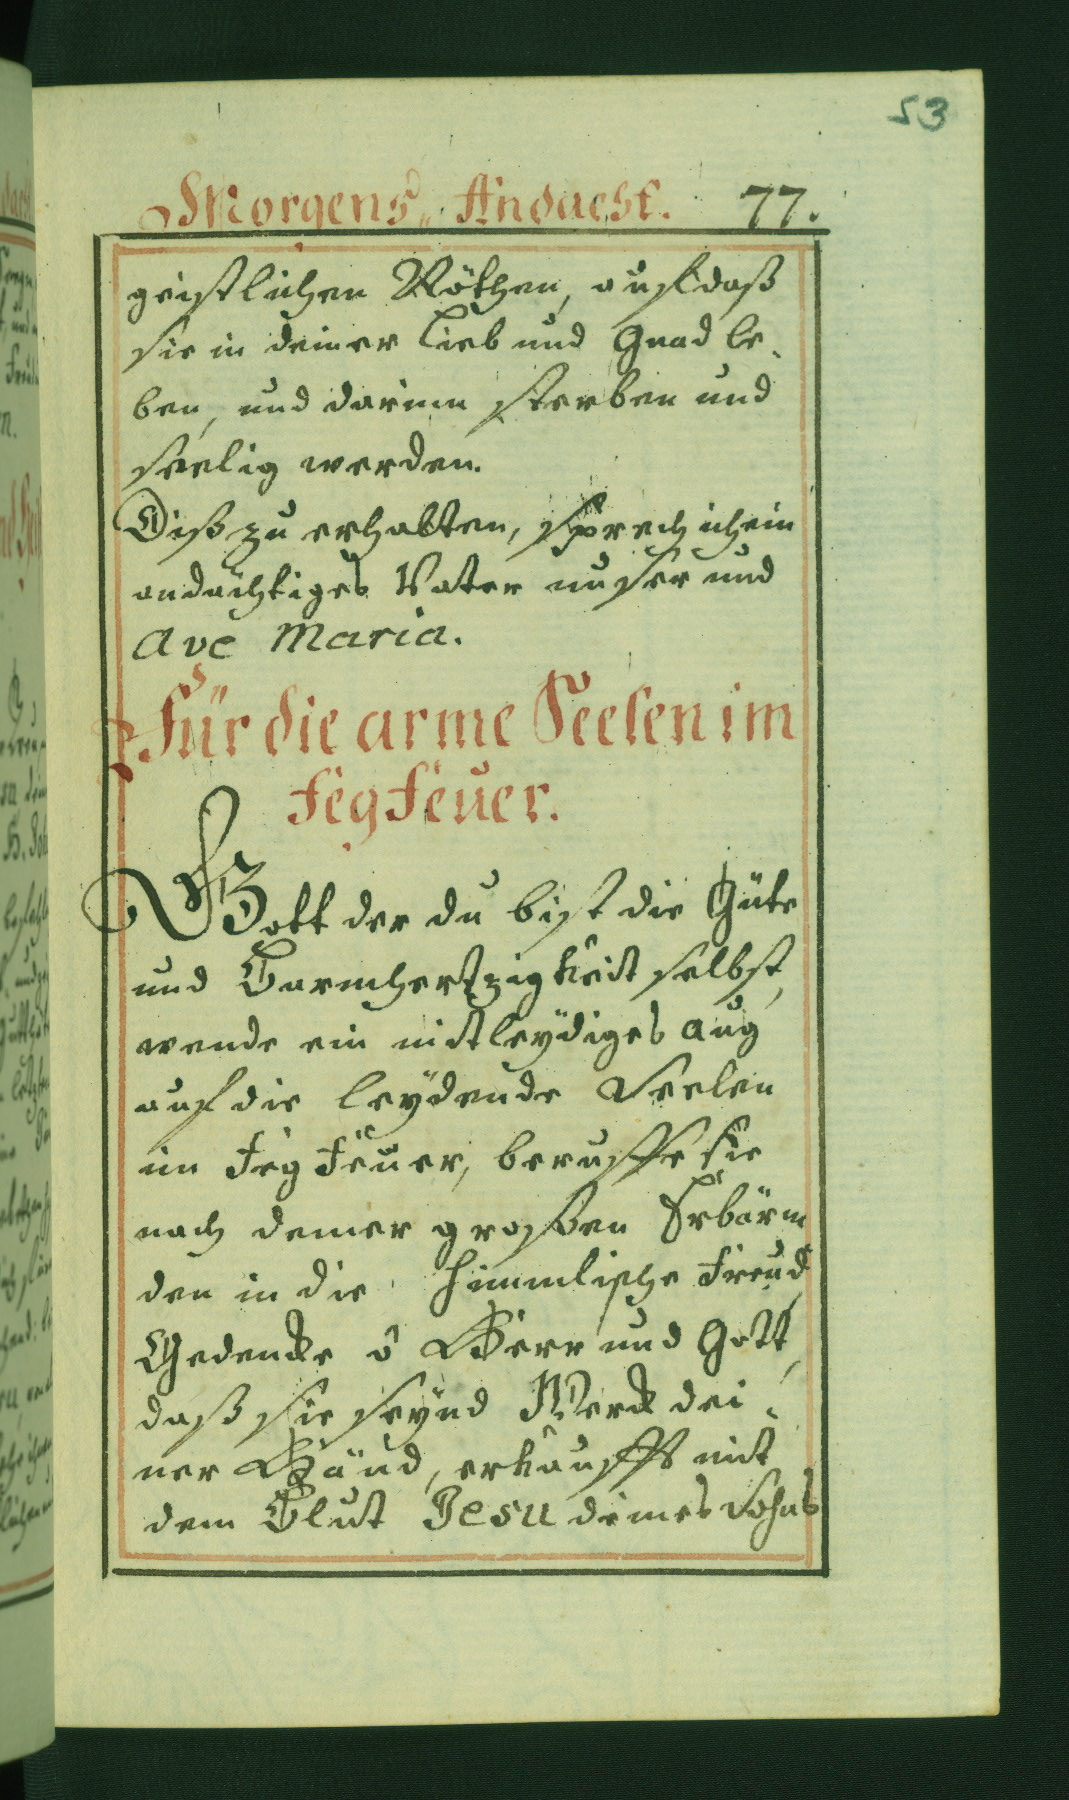 53
Morgens„ Andacht. 77.
geistlichen Nöthen, auf daß
sie in deiner Lieb und Gnad le,
ben, und darinn sterben und
seelig werden.
Diß zu erhalten, sprech ich ein
andächtiges Vater unser und
Ave Maria.
Für die arme Seelen im
FegFeuer.
O Gott der du bist die Güte
und Barmhertzigkeit selbst,
wende ein mitleydiges Aug
auf die leydende Seelen
im FegFeuer, beruffe sie
nach deiner großen Erbärm
den in die himmlische Freud,
Gedencke ô Herr und Gott,
daß sie seynd Werck dei,
ner Händ, erkaufft mit
dem Blut Jesu deines Sohns